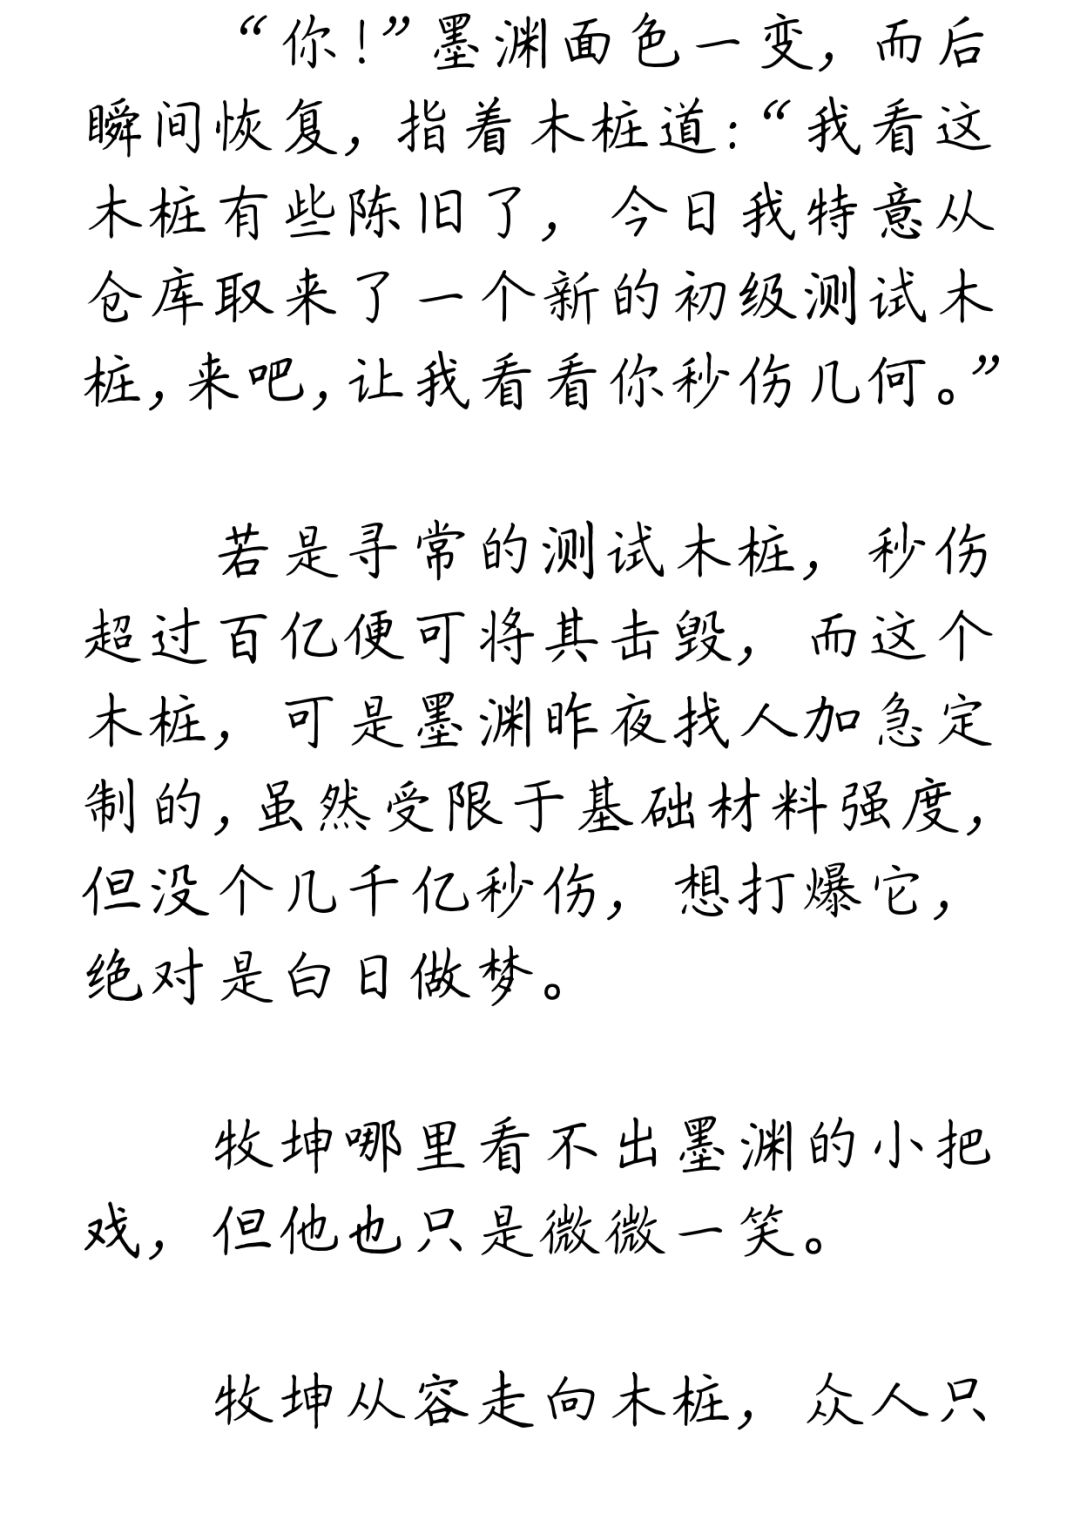 “你！”墨渊面色一变，而后
瞬间恢复，指着木桩道：“我看这
木桩有些陈旧了，今日我特意从
仓库取来了一个新的初级测试木
桩，来吧，让我看看你秒伤几何。”
若是寻常的测试木桩，秒伤
超过百亿便可将其击毁，而这个
木桩，可是墨渊昨夜找人加急定
制的，虽然受限于基础材料强度，
但没个几千亿秒伤，想打爆它，
绝对是白日做梦。
牧坤哪里看不出墨渊的小把
戏，但他也只是微微一笑。
牧坤从容走向木桩，众人只